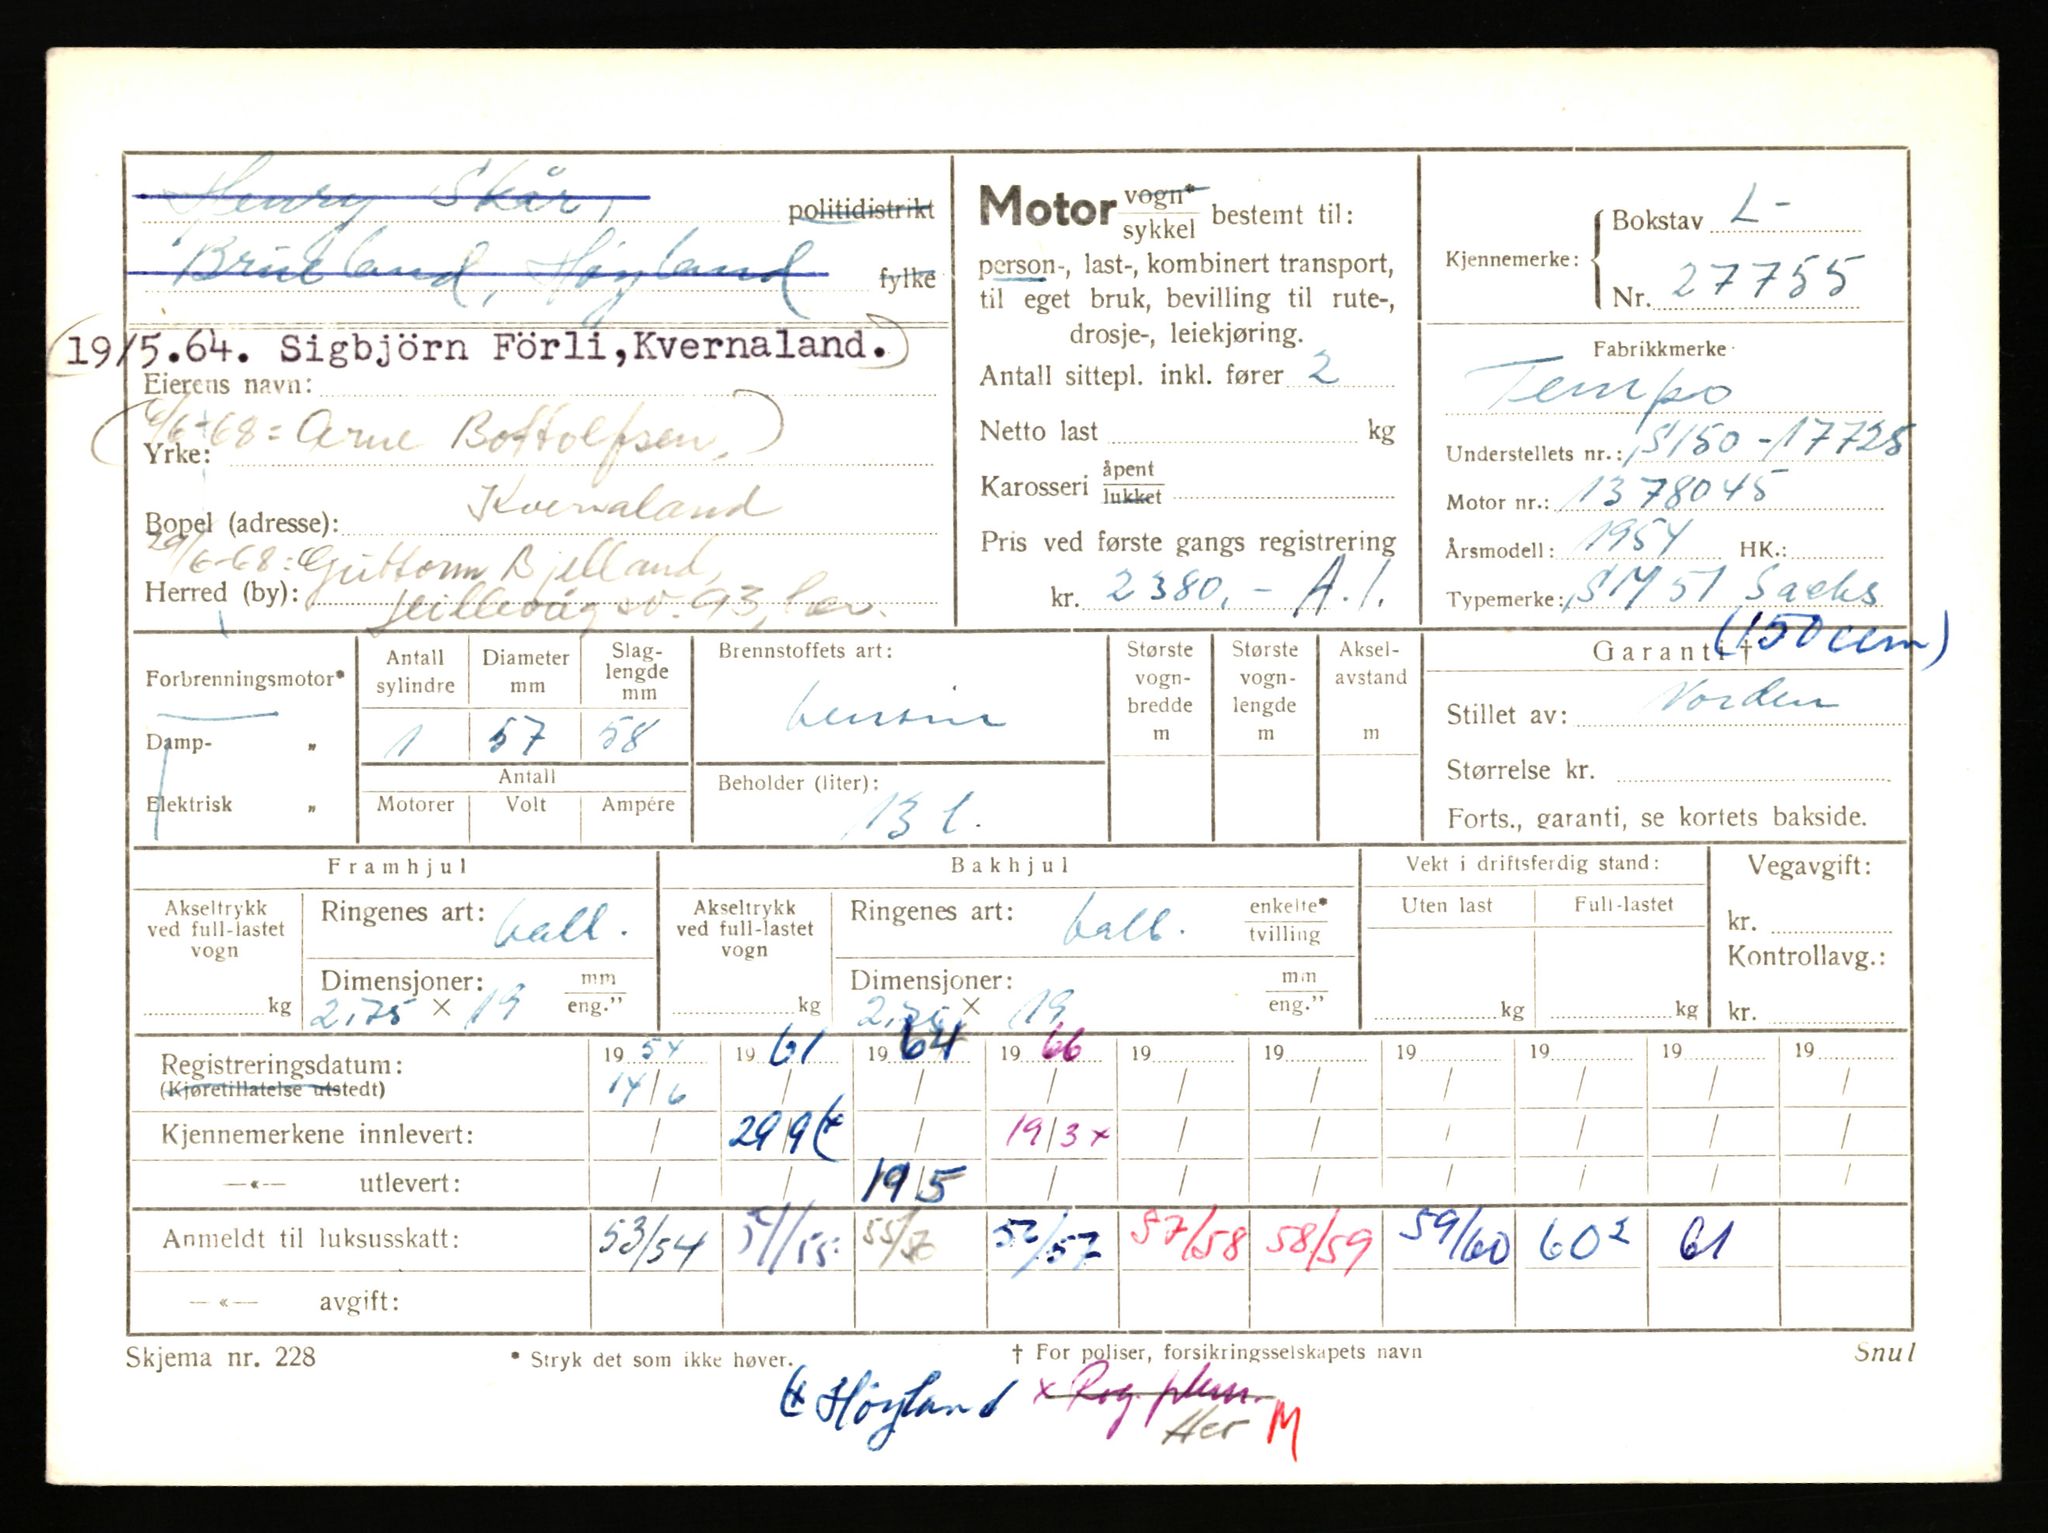 Henry Skår, politidistrikt
Brueland, Høyland fylke
19/5.64. Sigbjörn Förli, Kvernaland.
Eierens navn:
6/6-68 = Arne Bottolfsen,
Yrke:
Kvernaland
Bopel (adresse):
29/6-68: Guttorm Bjelland,
Herred (by): Hillevåg sv. 93, her.
Motor vogn* / sykkel bestemt til:
person-, last-, kombinert transport,
til eget bruk, bevilling til rute-,
drosje-, leiekjøring.
Antall sittepl. inkl. fører 2
Netto last kg
Karosseri åpent / lukket
Pris ved første gangs registrering
kr. 2380,- A.1.
Kjennemerke: Bokstav L-
Nr. 27755
Fabrikkmerke
Tempo
Understellets nr.: S150-17725
Motor nr.: 1378045
Årsmodell: 1954 HK.:
Typemerke: SM 51 Sachs
(150 ccm)
Forbrenningsmotor*
Damp- "
Elektrisk "
Antall sylindre Diameter mm Slaglengde mm
1 57 58
Antall
Motorer Volt Ampére
Brennstoffets art:
bensin
Beholder (liter):
13 l.
Største vognbredde m
Største vognlengde m
Akselavstand m
Garanti †
Stillet av: Norden
Størrelse kr.
Forts., garanti, se kortets bakside.
Framhjul
Akseltrykk ved full-lastet vogn kg
Ringenes art: ball.
Dimensjoner: mm / eng."
2,75 x 19
Bakhjul
Akseltrykk ved full-lastet vogn kg
Ringenes art: ball. enkelte* / tvilling
Dimensjoner: mm / eng."
2,75 x 19
Vekt i driftsferdig stand:
Uten last Full-lastet
kg kg
Vegavgift:
kr.
Kontrollavg.:
kr.
Registreringsdatum: 1954 1961 1964 1966 19 19 19 19 19 19
(Kjøretillatelse utstedt) 14/6 / / / / / / / / /
Kjennemerkene innlevert: / 29/9 / 19/3 x / / / / / /
—«— utlevert: / / 19/5 / / / / / / /
Anmeldt til luksusskatt: 53/54 54/55 55/56 56/57 57/58 58/59 59/60 60² 61
—«— avgift:
Skjema nr. 228 * Stryk det som ikke høver. † For poliser, forsikringsselskapets navn Snul
Høyland x Rog. plem.
Her M